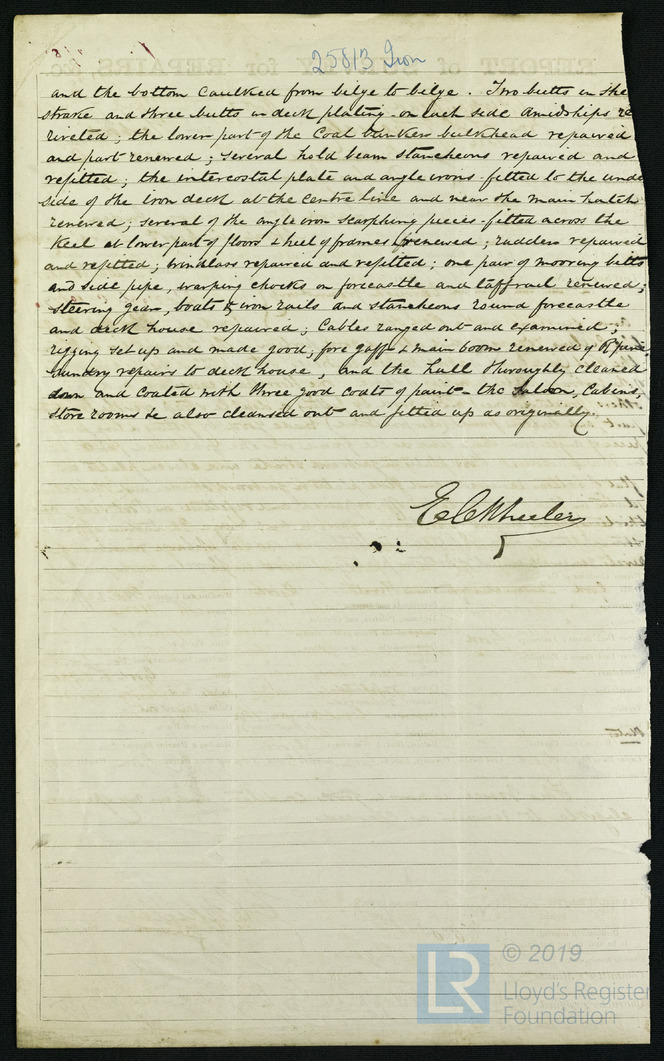 25813 Iron
and the bottom caulked from bilge to bilge. Two butts in the
strake and three butts in deck plating on each side amidships re
riveted; the lower part of the Coal bunkers bulkhead repaired
and part renewed; several hold beam stancheons repaired and
refitted; the intercostal plate and angle irons fitted to the under
side of the iron deck at the centre line and near the main hatch
renewed; several of the angle iron scarphing pieces fitted across the
keel at lower part of floors & heel of frames renewed; rudders repaired
and refitted; windlass repaired and refitted; one pair of mooring bitts
and side pipe, warping chocks on forecastle and taffrail renewed;
steering gear, boats & iron rails and stancheons round forecastle
and deck house repaired; Cables ranged out and examined;
rigging set up and made good; fore gaff & main boom renewed of P. pine
Sundry repairs to deck house, and the hull thoroughly cleaned
down and coated with three good coats of paint - the Saloon, Cabins,
store rooms &c also cleansed out and fitted up as originally.
E C Wheeler
LR
© 2019
Lloyd's Register
Foundation